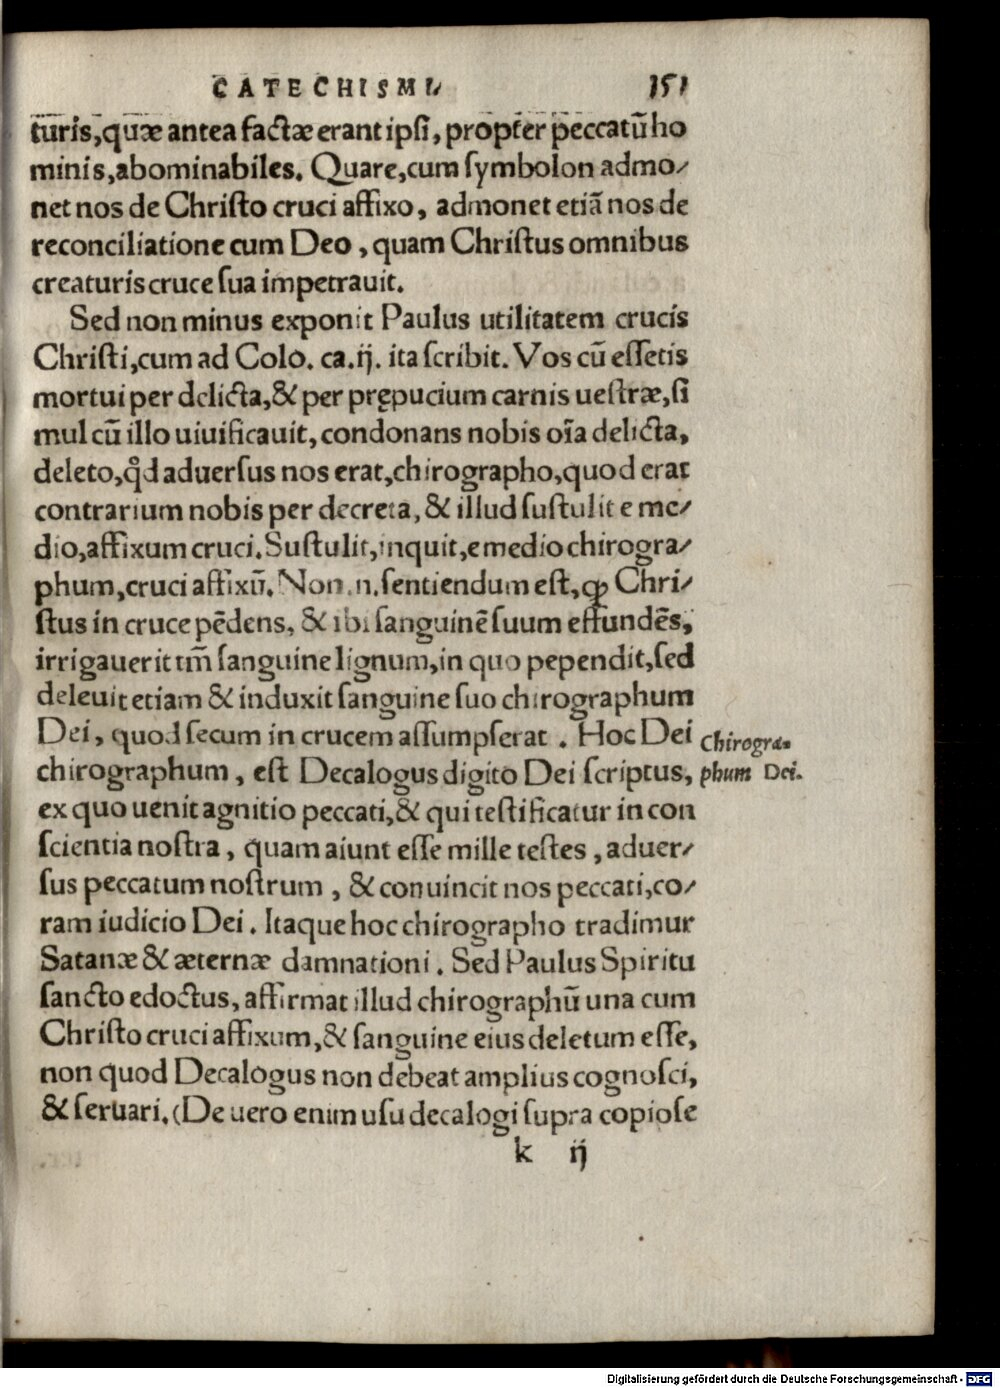 CATECHISMI. 151
turis, quæ antea factæ erant ipſi, propter peccatũ ho
minis, abominabiles. Quare, cum ſymbolon admo⸗
net nos de Chriſto cruci affixo, admonet etiã nos de
reconciliatione cum Deo, quam Chriſtus omnibus
creaturis cruce ſua impetrauit.
Sed non minus exponit Paulus utilitatem crucis
Chriſti, cum ad Colo. ca. ij. ita ſcribit. Vos cũ eſſetis
mortui per delicta, & per prępucium carnis ueſtræ, ſi
mul cũ illo uiuificauit, condonans nobis oı̃a delicta,
deleto, qd̓ aduerſus nos erat, chirographo, quod erat
contrarium nobis per decreta, & illud ſuſtulit e me⸗
dio, affixum cruci. Suſtulit, inquit, e medio chirogra⸗
phum, cruci affixũ. Non .n. ſentiendum eſt, ꝙ Chri⸗
ſtus in cruce pẽdens, & ibi ſanguinẽ ſuum effundẽs,
irrigauerit tm̃ ſanguine lignum, in quo pependit, ſed
deleuit etiam & induxit ſanguine ſuo chirographum
Dei, quod ſecum in crucem aſſumpſerat. Hoc Dei
chirographum, eſt Decalogus digito Dei ſcriptus,
Chirogra⸗
phum Dei.
ex quo uenit agnitio peccati, & qui teſtificatur in con
ſcientia noſtra, quam aiunt eſſe mille teſtes, aduer⸗
ſus peccatum noſtrum, & conuincit nos peccati, co⸗
ram iudicio Dei. Itaque hoc chirographo tradimur
Satanæ & æternæ damnationi. Sed Paulus Spiritu
ſancto edoctus, affirmat illud chirographũ una cum
Chriſto cruci affixum, & ſanguine eius deletum eſſe,
non quod Decalogus non debeat amplius cognoſci,
& ſeruari. (De uero enim uſu decalogi ſupra copioſe
k ij
Digitalisierung gefördert durch die Deutsche Forschungsgemeinschaft - DFG